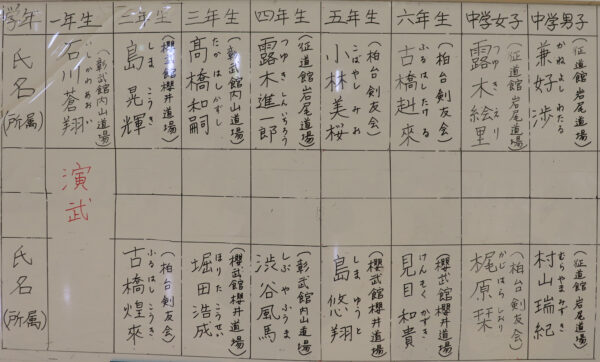 学年 一年生 二年生 三年生 四年生 五年生 六年生 中学女子 中学男子
氏名(所属)
石川蒼翔
いしかわ あおい
(彰武館内山道場)
島晃輝
しま こうき
(櫻武館櫻井道場)
高橋和嗣
たかはし かずし
(彰武館内山道場)
露木進一郎
つゆき しんいちろう
(征道館岩尾道場)
小林美桜
こばやし みお
(柏台剣友会)
古橋赳來
ふるはし たける
(柏台剣友会)
露木絵里
つゆき えり
(征道館岩尾道場)
兼好渉
かねよし わたる
(征道館岩尾道場)
演武
氏名(所属)
古橋煌來
ふるはし こうき
(柏台剣友会)
堀田浩成
ほりた こうせい
(櫻武館櫻井道場)
渋谷風馬
しぶや ふうま
(彰武館内山道場)
島悠翔
しま ゆうと
(櫻武館櫻井道場)
見目和貴
けんもく かずき
(櫻武館櫻井道場)
梶原栞
かじはら しおり
(柏台剣友会)
村山瑞紀
むらやま みずき
(征道館岩尾道場)